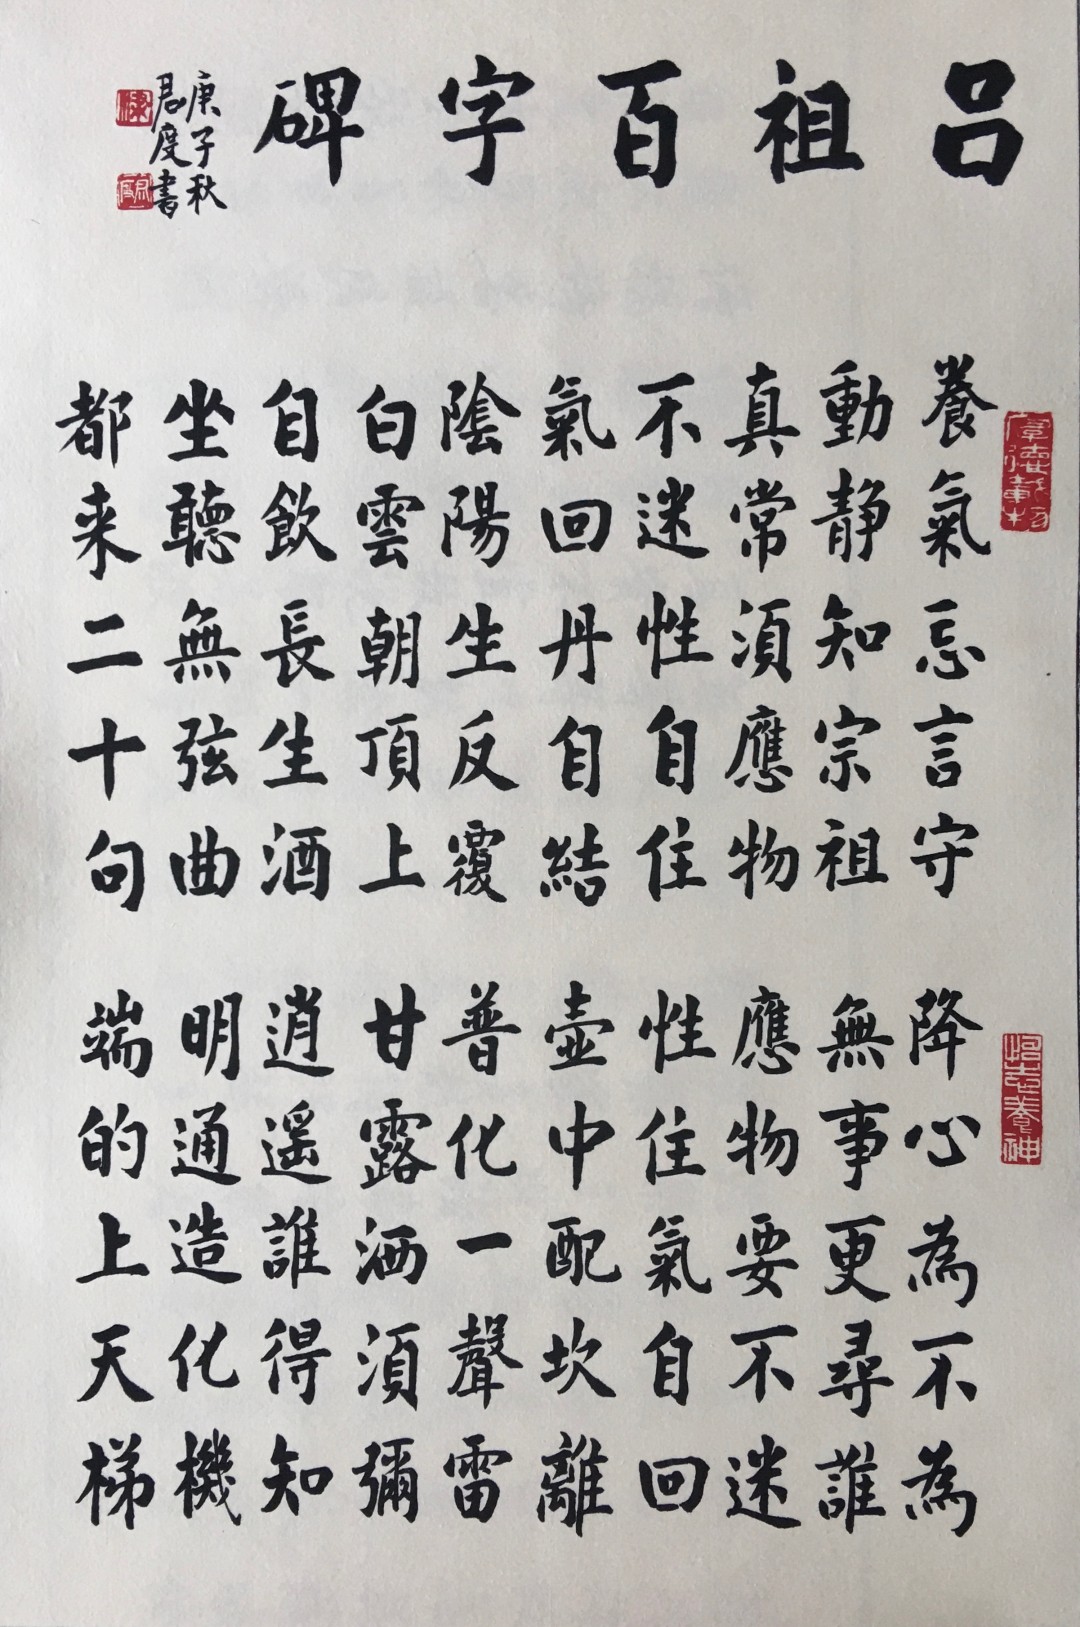 呂祖百字碑
養氣忘言守
降心為不為
動静知宗祖
無事更尋誰
真常須應物
應物要不迷
不迷性自住
性住氣自回
氣回丹自結
壺中配坎離
陰陽生反覆
普化一聲雷
白雲朝頂上
甘露洒須彌
自飲長生酒
逍遥誰得知
坐聽無弦曲
明通造化機
都来二十句
端的上天梯
庚子秋
君度書
厚德載物
怡志養神